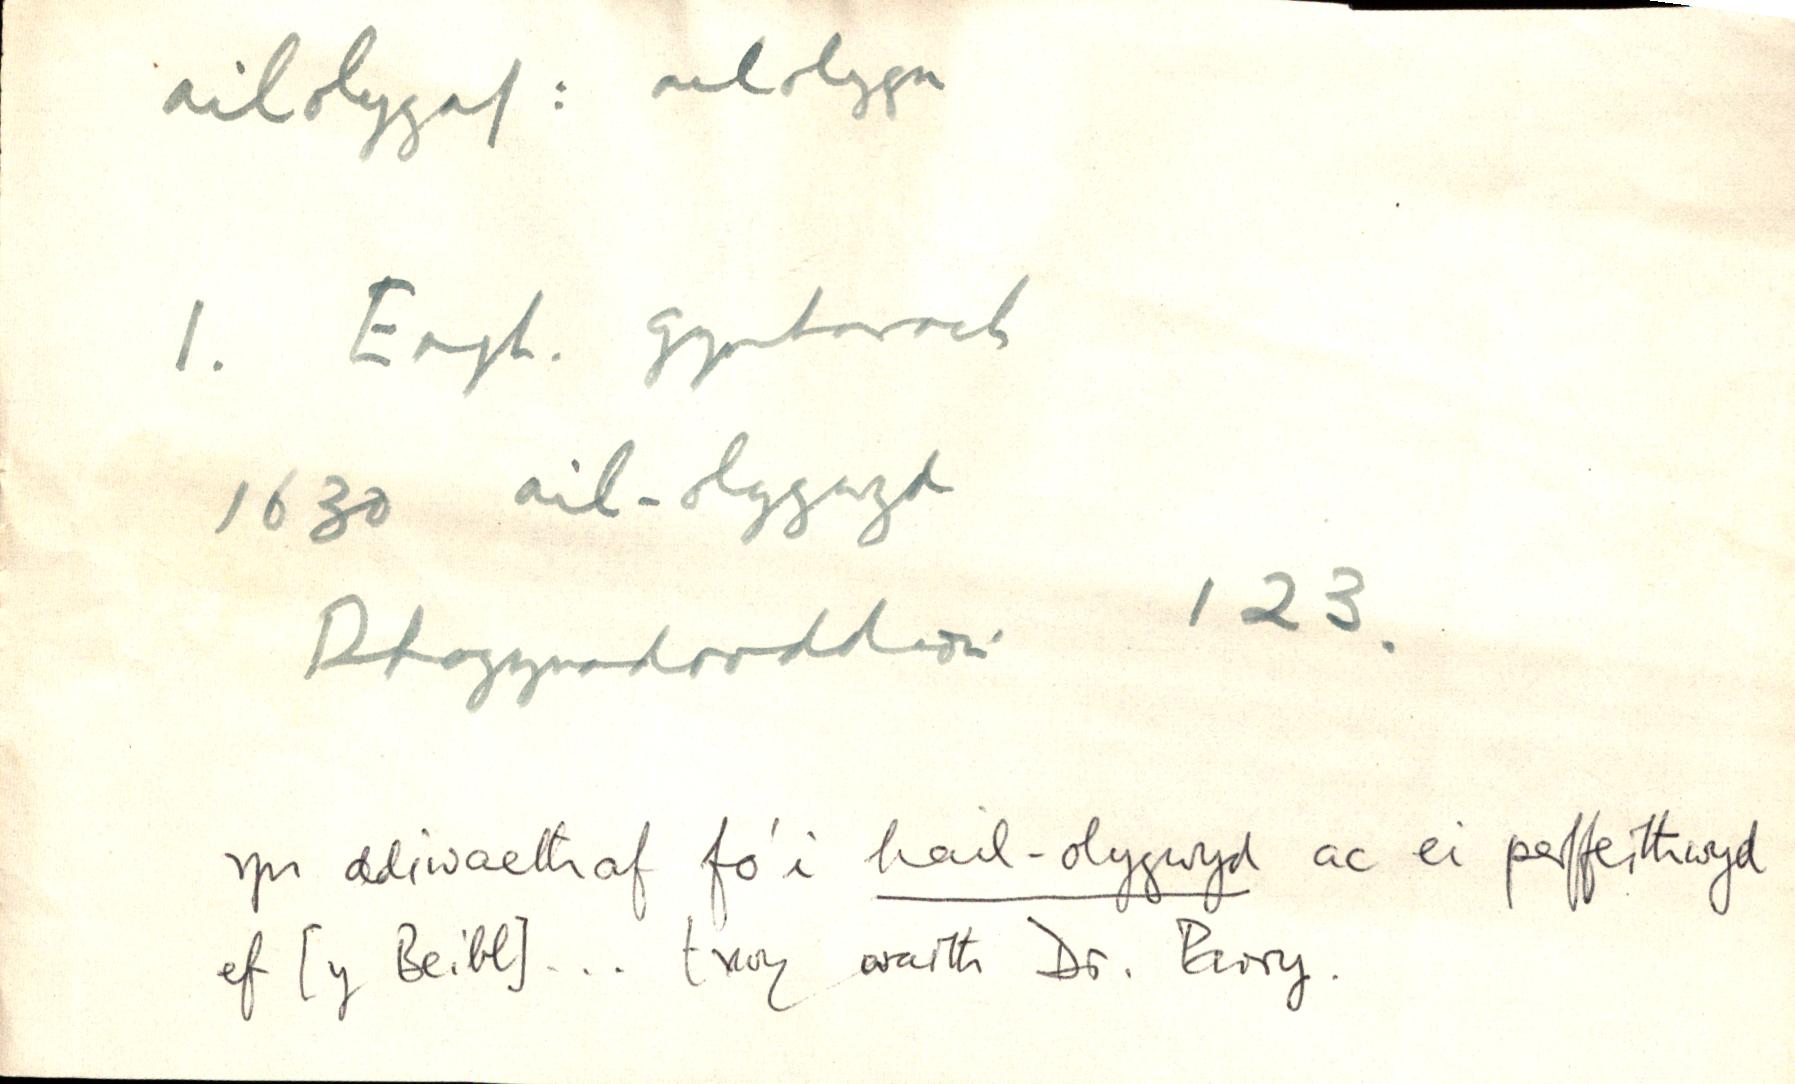 ailolygaf : ailolygu
1. Engh. gyntarach
1630 ail-olygwyd
Rhagymadroddion 123.
yn ddiwaethaf fo'i hail-olygwyd ac ei perffeithwyd
ef [y Beibl] ... trwy waith Dr. Parry.